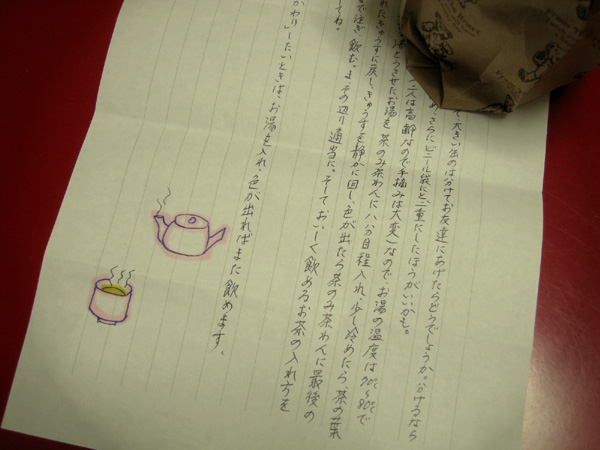 て大きい缶のは分けてお友達にあげたらどうでしょうか。分けるなら
め、さらにビニール袋にと二重にしたほうがいいかも。
二人は高齢なので手摘みは大変)なので、お湯の温度は70℃〜80℃で
とうさせたお湯を茶のみ茶わんに八分目程入れ、少し冷めたら、茶のみ葉
れたきゅうすに戻し、きゅうすを静かに回し、色が出たら茶のみ茶わんに最後の
で注ぎ飲む。ま、その辺り適当に。そしておいしく飲めるお茶の入れ方を
てね。
かわり」したいときは、お湯を入れ、色が出ればまた飲めます。